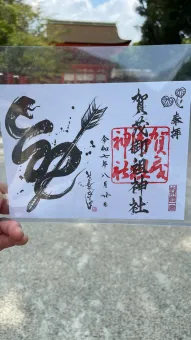 奉拝
賀茂御祖神社
賀茂
神社
令和七年八月八日